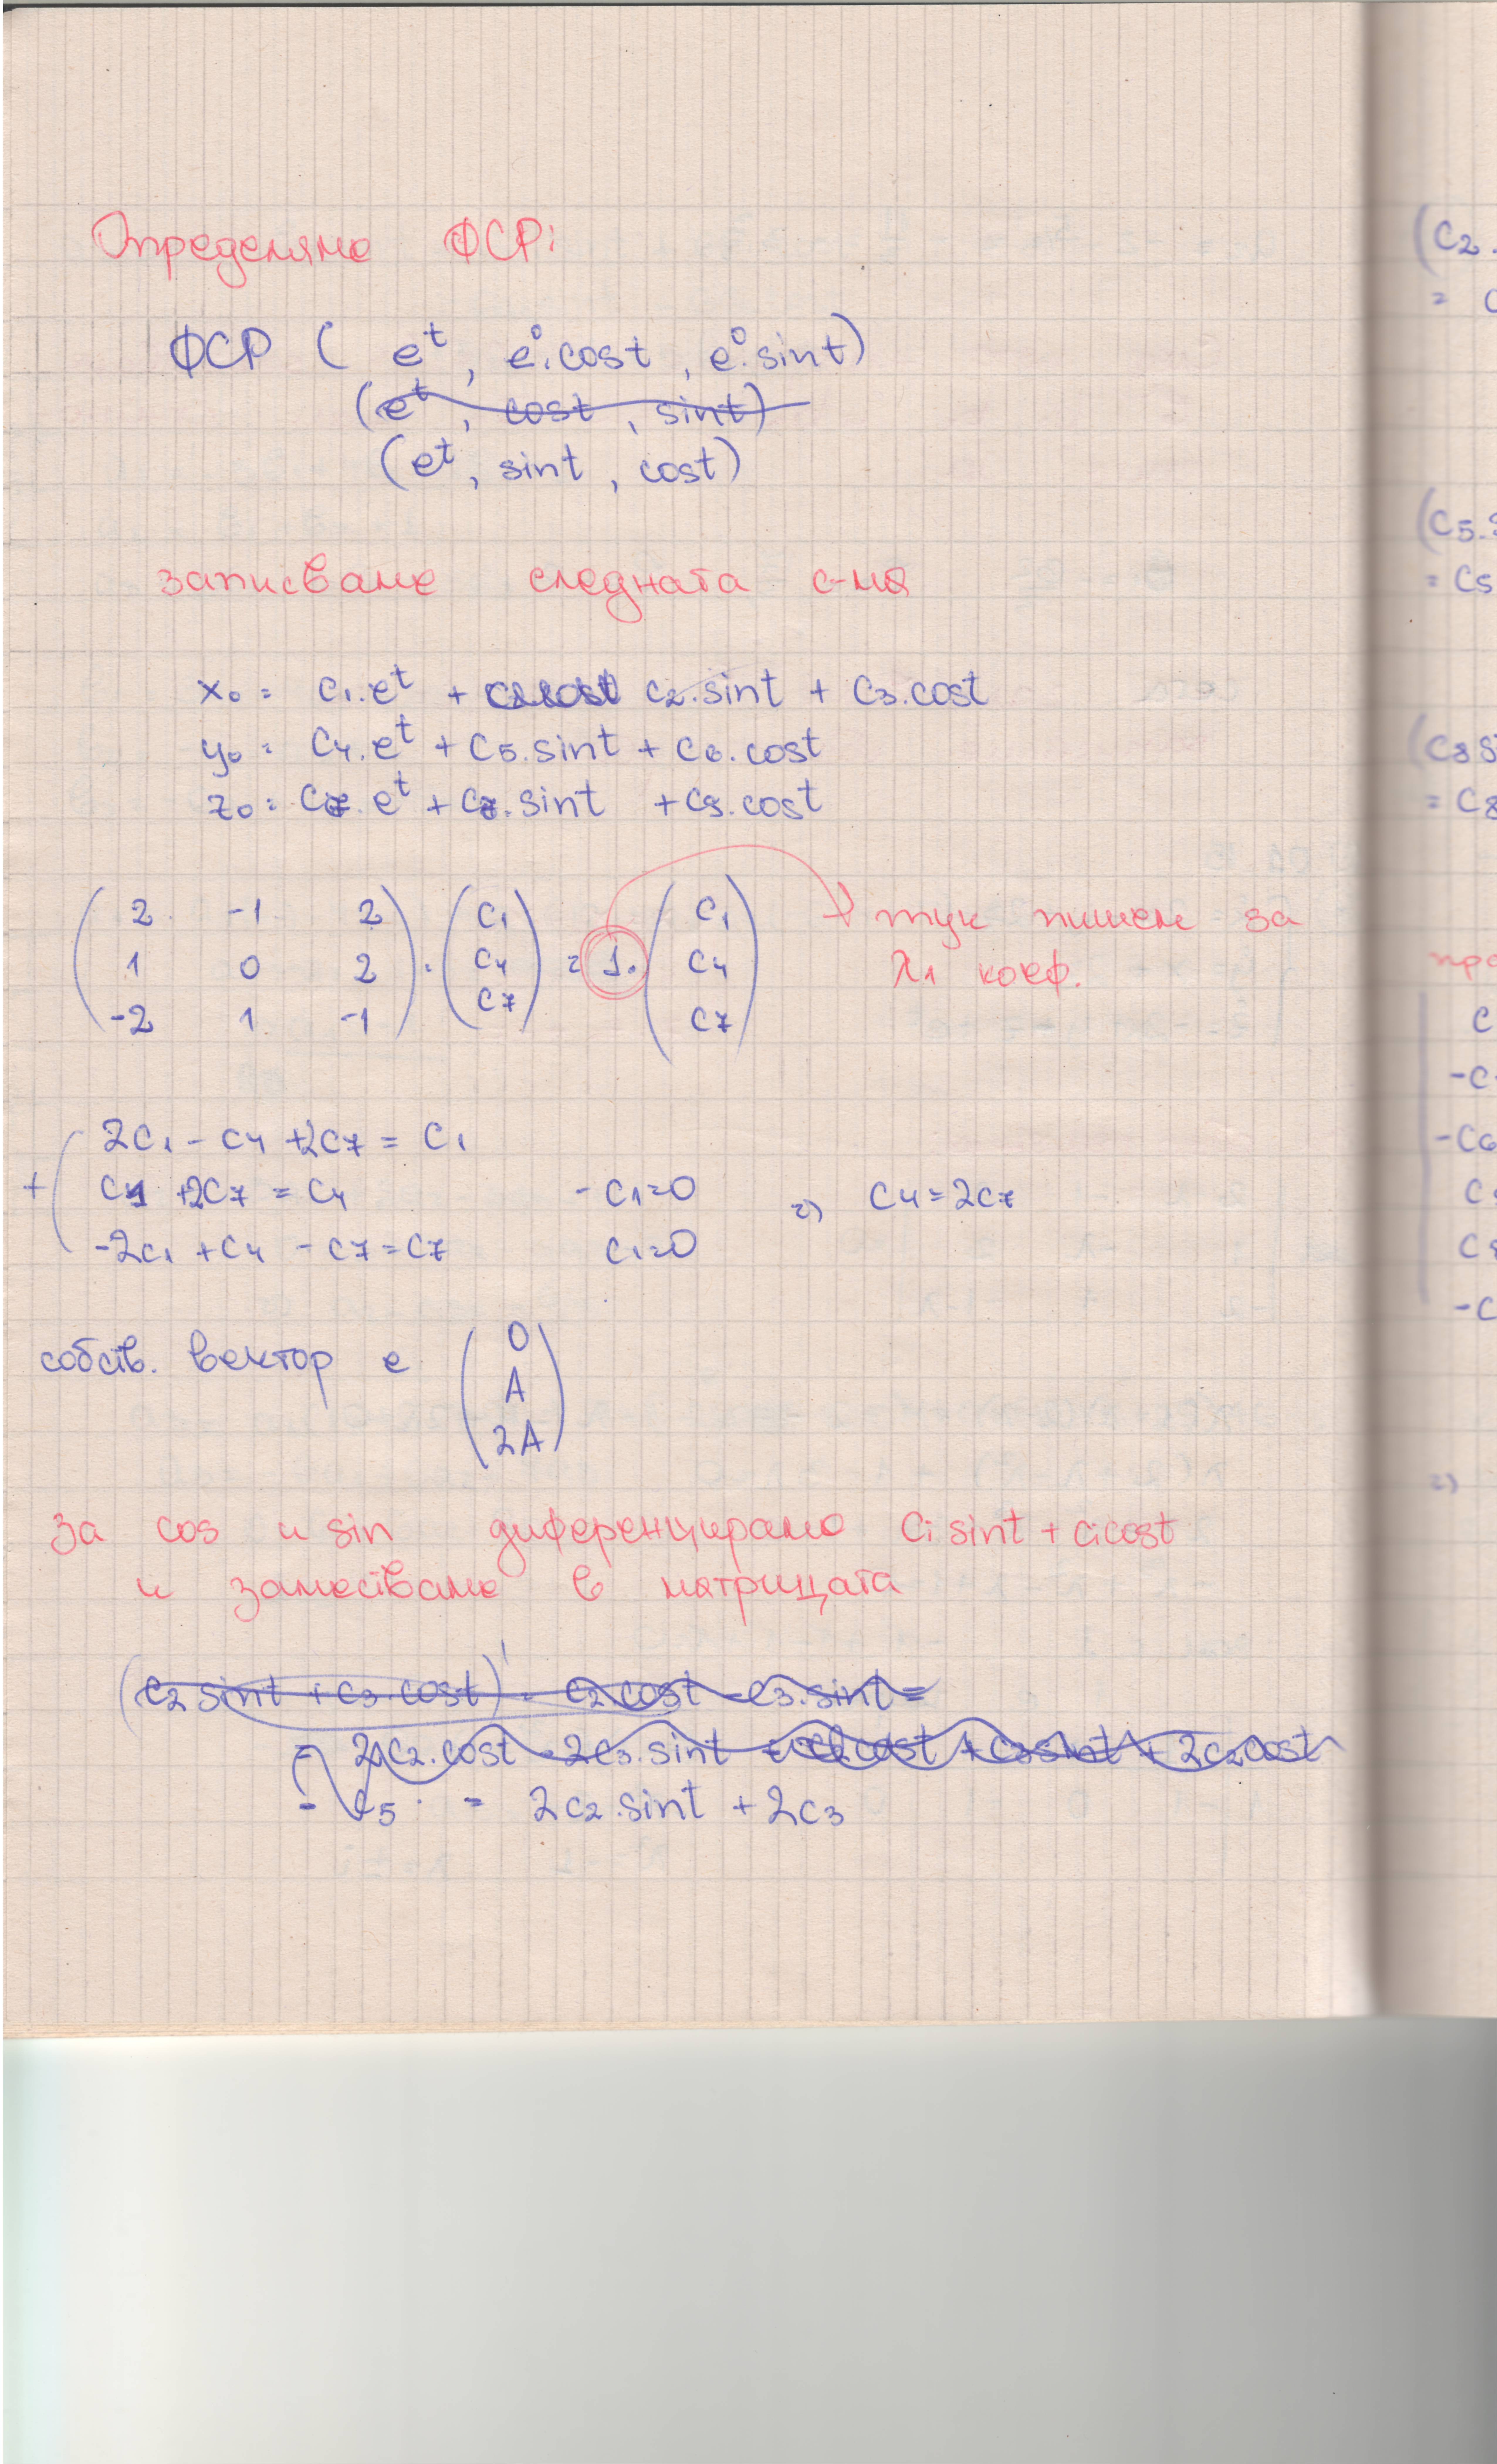 Определяме ФСР:
ФСР ( e^t , e^0.cost , e^0.sint)
(e^t , cost , sint)
(e^t , sint , cost)
записваме следната с-ма
x₀ = c₁.e^t + c₂.sint + c₃.cost
y₀ = c₄.e^t + c₅.sint + c₆.cost
z₀ = c₇.e^t + c₈.sint + c₉.cost
2 -1 2 c₁ c₁
1 0 2 . c₄ = 1. c₄ тук пишем за
-2 1 -1 c₇ c₇ λ₁ коеф.
2c₁ - c₄ + 2c₇ = c₁
+ c₁ + 2c₇ = c₄ - c₁=0 => c₄=2c₇
-2c₁ + c₄ - c₇ = c₇ c₁=0
собств. вектор е
0
A
2A
за cos и sin диференцираме cᵢ sint + cᵢcost
и заместваме в матрицата
(c₂ sint + c₃.cost)' = c₂cost - c₃.sint =
= 2c₂.cost - 2c₃.sint + 2c₂cost
- c₅. = 2c₂.sint + 2c₃
(c₂.
=
(c₅.
= c₅
(c₈ si
= c₈
c
-c
-c₆
c
c₈
-c
=>